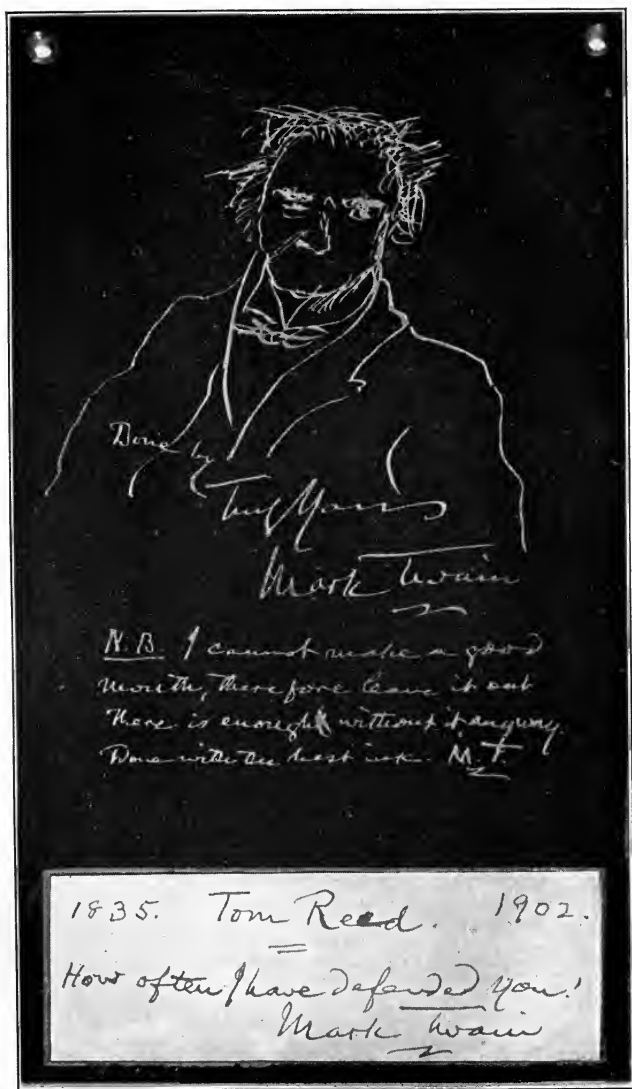 Done by
Truly Yours
Mark Twain
N.B. I cannot make a good
mouth, therefore leave it out
There is enough without it anyway.
Done with the best ink. M.T.
1835. Tom Reed. 1902.
How often I have defended you!
Mark Twain